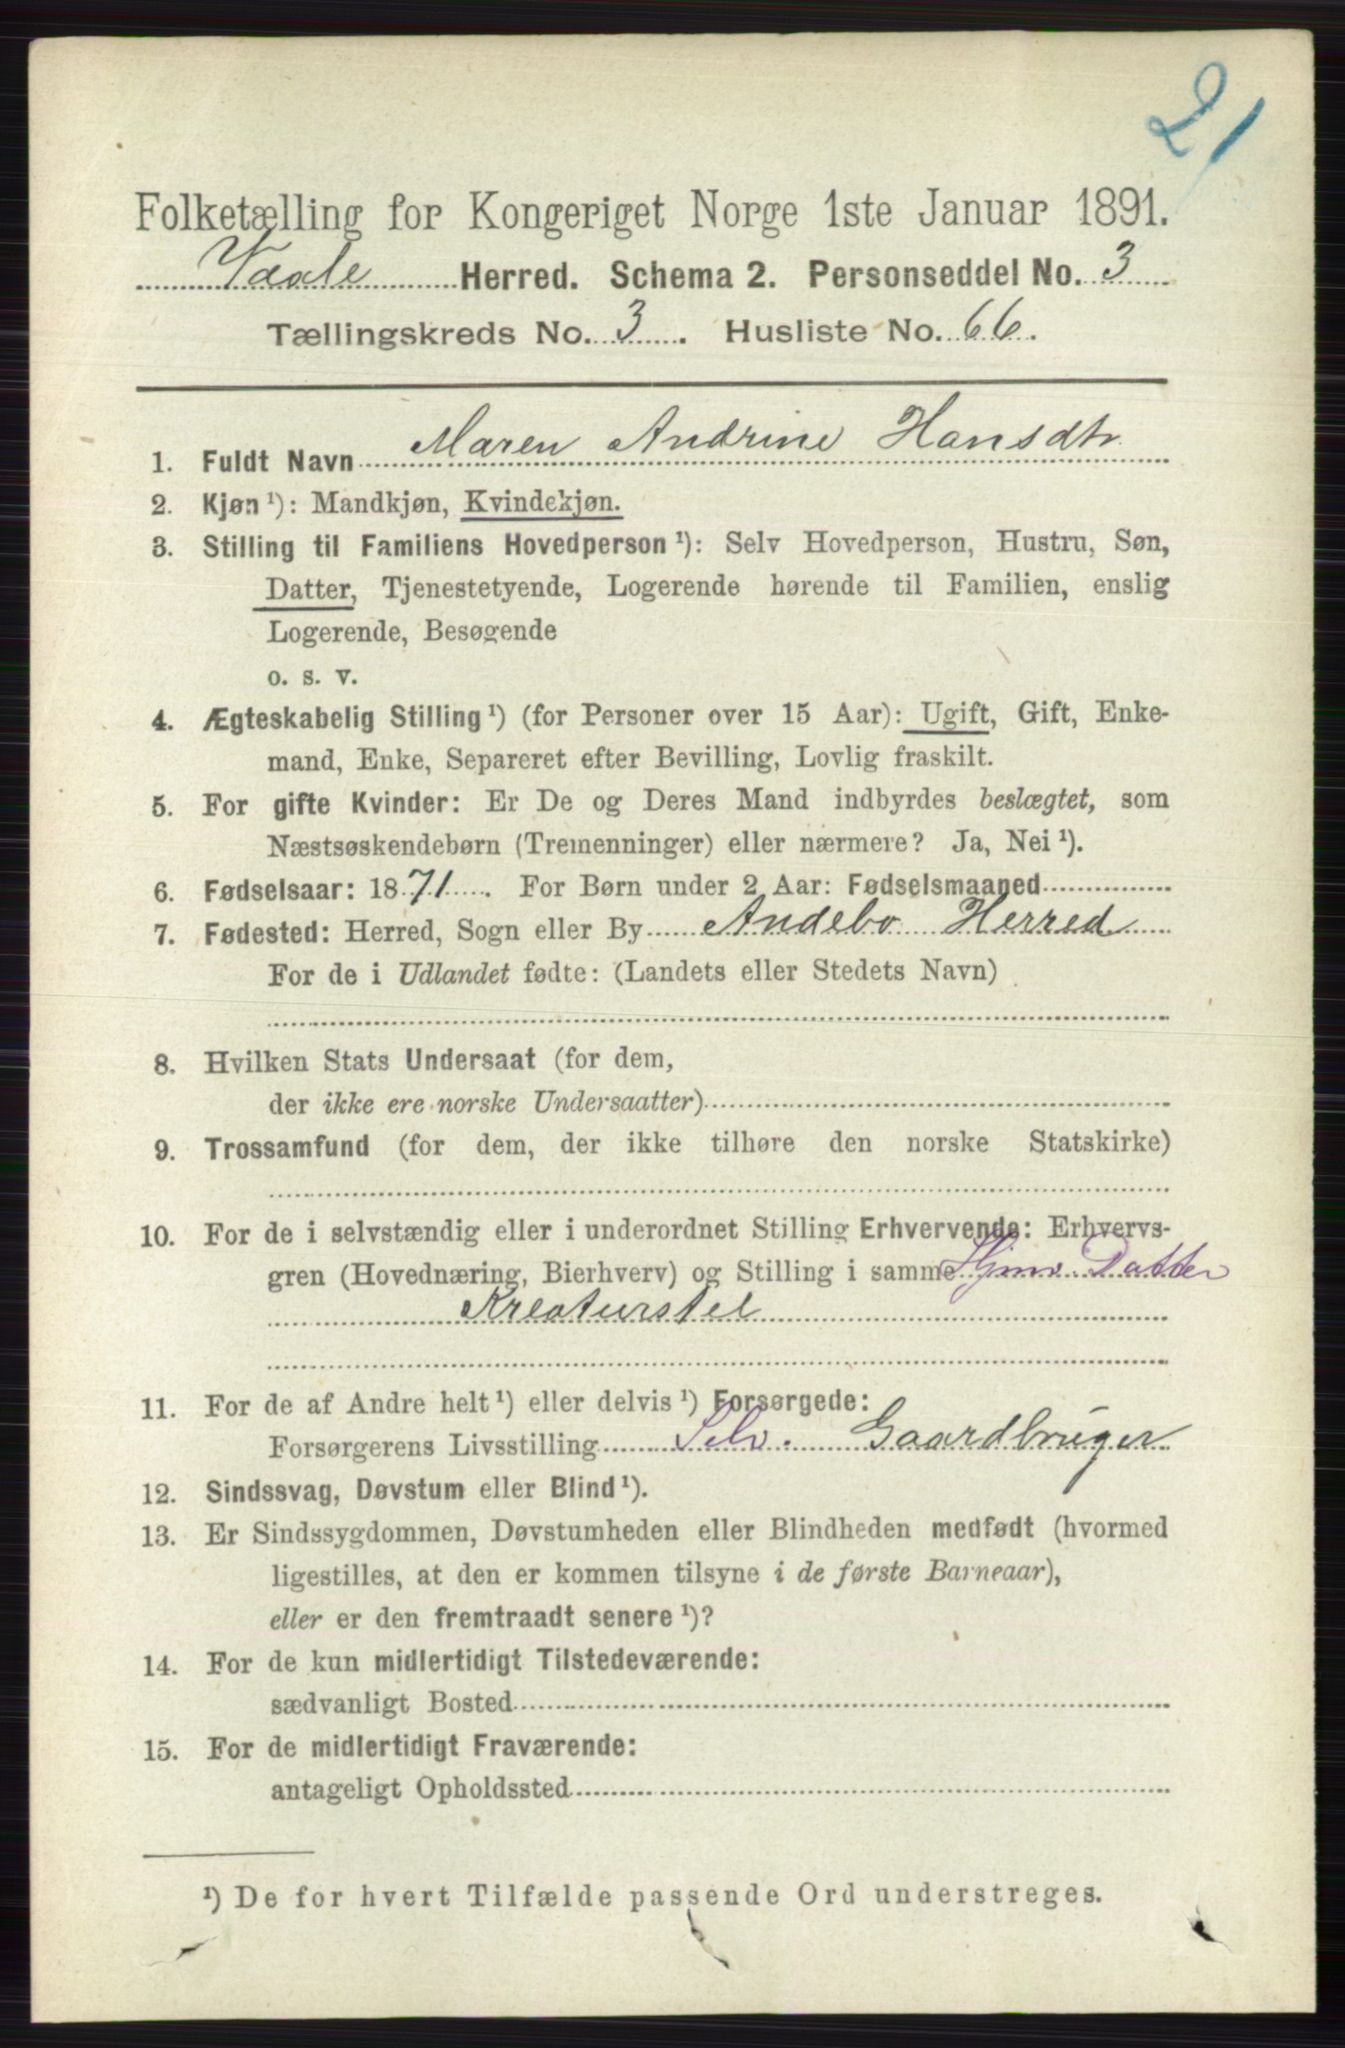 21
Folketælling for Kongeriget Norge 1ste Januar 1891.
Vaale Herred. Schema 2. Personseddel No. 3
Tællingskreds No. 3. Husliste No. 66.
1. Fuldt Navn Maren Andrine Hansdtr
2. Kjøn ¹): Mandkjøn, Kvindekjøn.
3. Stilling til Familiens Hovedperson ¹): Selv Hovedperson, Hustru, Søn,
Datter, Tjenestetyende, Logerende hørende til Familien, enslig
Logerende, Besøgende
o. s. v.
4. Ægteskabelig Stilling ¹) (for Personer over 15 Aar): Ugift, Gift, Enke-
mand, Enke, Separeret efter Bevilling, Lovlig fraskilt.
5. For gifte Kvinder: Er De og Deres Mand indbyrdes beslægtet, som
Næstsøskendebørn (Tremenninger) eller nærmere? Ja, Nei ¹).
6. Fødselsaar: 1871. For Børn under 2 Aar: Fødselsmaaned
7. Fødested: Herred, Sogn eller By Andebo Herred
For de i Udlandet fødte: (Landets eller Stedets Navn)
8. Hvilken Stats Undersaat (for dem,
der ikke ere norske Undersaatter)
9. Trossamfund (for dem, der ikke tilhøre den norske Statskirke)
10. For de i selvstændig eller i underordnet Stilling Erhvervende: Erhvervs-
gren (Hovednæring, Bierhverv) og Stilling i samme Hjmv. Datter
Kreaturstel
11. For de af Andre helt ¹) eller delvis ¹) Forsørgede:
Forsørgerens Livsstilling Selv. Gaardbruger
12. Sindssvag, Døvstum eller Blind ¹).
13. Er Sindssygdommen, Døvstumheden eller Blindheden medfødt (hvormed
ligestilles, at den er kommen tilsyne i de første Barneaar),
eller er den fremtraadt senere ¹)?
14. For de kun midlertidigt Tilstedeværende:
sædvanligt Bosted
15. For de midlertidigt Fraværende:
antageligt Opholdssted
¹) De for hvert Tilfælde passende Ord understreges.